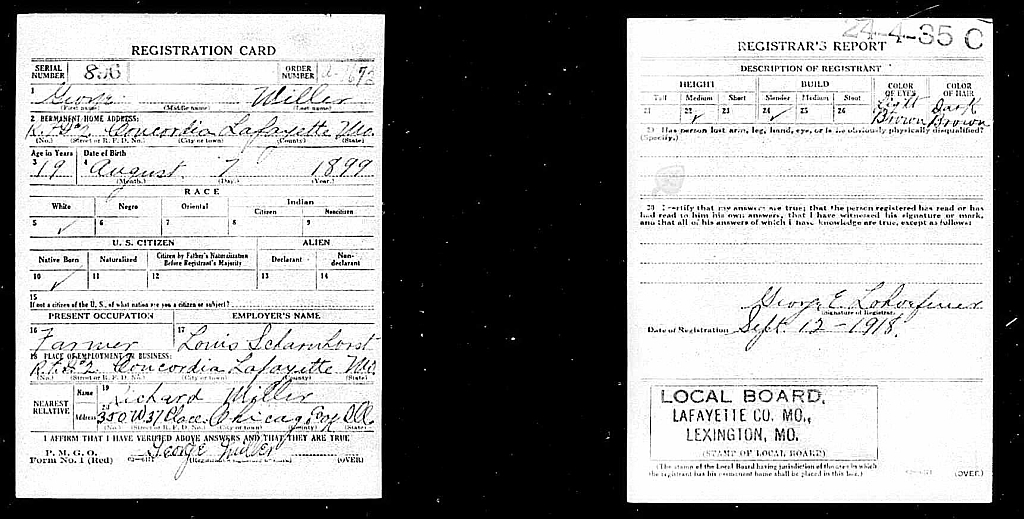 REGISTRATION CARD
SERIAL NUMBER 856 ORDER NUMBER
1 George Miller
(First name) (Middle name) (Last name)
2 PERMANENT HOME ADDRESS:
R.F.D#2 Concordia Lafayette Mo.
(No.) (Street or R. F. D. No.) (City or town) (County) (State)
Age in Years Date of Birth
3 19 4 August 7 1899
(Month.) (Day.) (Year.)
RACE
White Negro Oriental Indian
Citizen Noncitizen
5 ✓ 6 7 8 9
U. S. CITIZEN ALIEN
Native Born Naturalized Citizen by Father's Naturalization Before Registrant's Majority Declarant Non-declarant
10 ✓ 11 12 13 14
15
If not a citizen of the U. S., of what nation are you a citizen or subject?
PRESENT OCCUPATION EMPLOYER'S NAME
16 Farmer 17 Louis Scharnhorst
18 PLACE OF EMPLOYMENT OR BUSINESS:
R.F.D#2 Concordia Lafayette Mo.
(No.) (Street or R. F. D. No.) (City or town) (County) (State)
NEAREST RELATIVE Name 19 Richard Miller
Address 20 350 W 37 Place Chicago Ill
(No.) (Street or R. F. D. No.) (City or town) (County) (State)
I AFFIRM THAT I HAVE VERIFIED ABOVE ANSWERS AND THAT THEY ARE TRUE
P. M. G. O.
Form No. 1 (Red) George Miller (OVER)
24-4-35 C
REGISTRAR'S REPORT
DESCRIPTION OF REGISTRANT
HEIGHT BUILD COLOR OF EYES COLOR OF HAIR
Tall Medium Short Slender Medium Stout
21 22 ✓ 23 24 ✓ 25 26 Light Brown Dark Brown
29 Has person lost arm, leg, hand, eye, or is he obviously physically disqualified?
(Specify.)
30 I certify that my answers are true; that the person registered has read or has
had read to him his own answers, that I have witnessed his signature or mark,
and that all of his answers of which I have knowledge are true, except as follows:
George E. Lohoefener
(Signature of Registrar)
Date of Registration Sept. 12-1918.
LOCAL BOARD,
LAFAYETTE CO. MO.,
LEXINGTON, MO.
(STAMP OF LOCAL BOARD)
(The stamp of the Local Board having jurisdiction of the area in which
the registrant has his permanent home shall be placed in this box.)
(OVER)